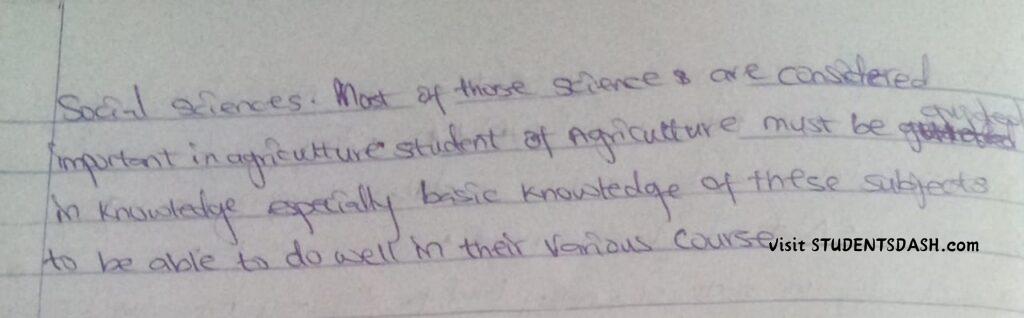 Social sciences. Most of those sciences are considered
important in agriculture student of Agriculture must be guided
in knowledge especially basic knowledge of these subjects
to be able to do well in their various course
Visit STUDENTSDASH.com